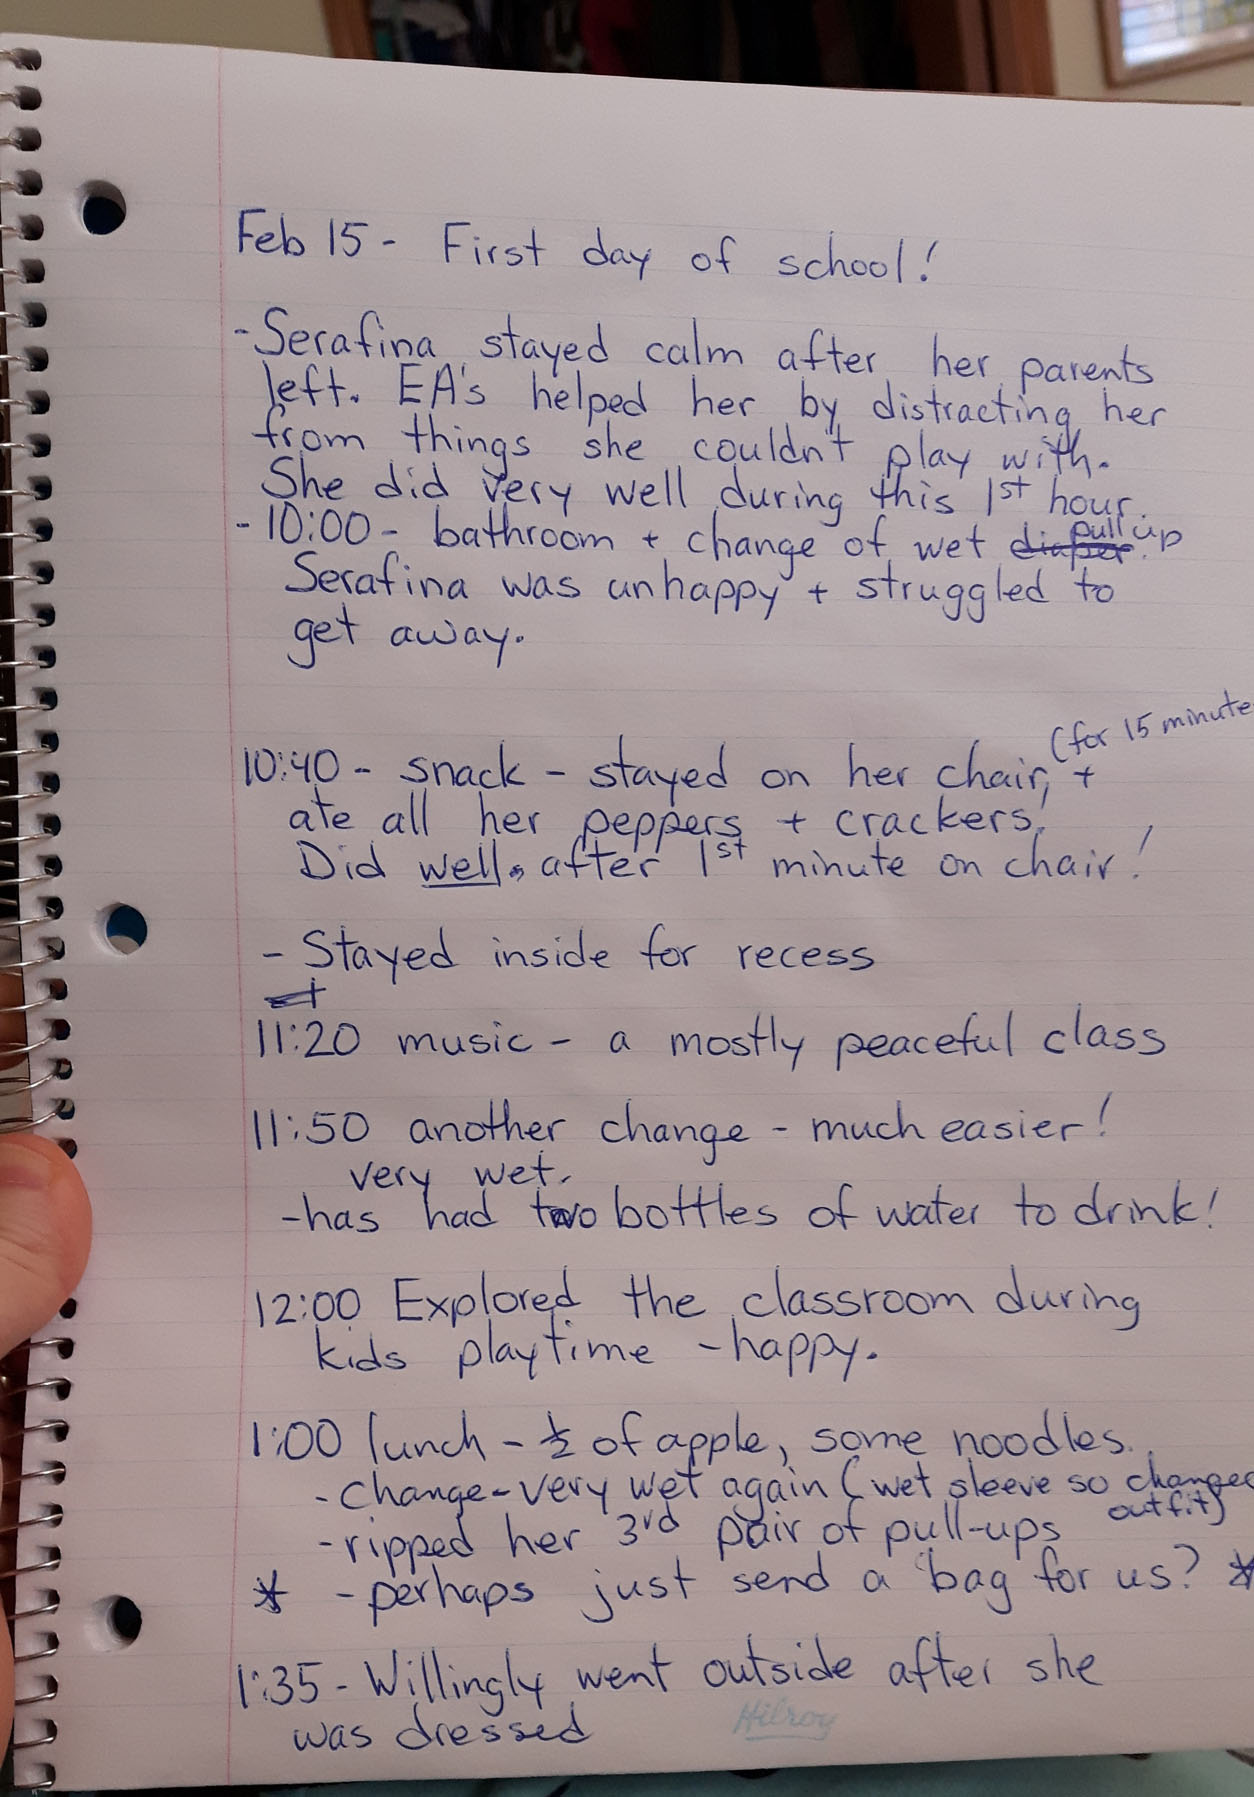 Feb 15 - First day of school!
- Serafina stayed calm after her parents
left. EA's helped her by distracting her
from things she couldn't play with.
She did very well during this 1st hour.
- 10:00 - bathroom + change of wet diaper. pull up
Serafina was unhappy + struggled to
get away.
(for 15 minute
10:40 - snack - stayed on her chair, +
ate all her peppers + crackers!
Did well, after 1st minute on chair!
- Stayed inside for recess
11:20 music - a mostly peaceful class
11:50 another change - much easier!
very wet.
- has had two bottles of water to drink!
12:00 Explored the classroom during
kids playtime - happy.
1:00 lunch - ½ of apple, some noodles.
- change - very wet again (wet sleeve so changed
outfit)
- ripped her 3rd pair of pull-ups
* - perhaps just send a bag for us? *
1:35 - Willingly went outside after she
was dressed
Hilroy